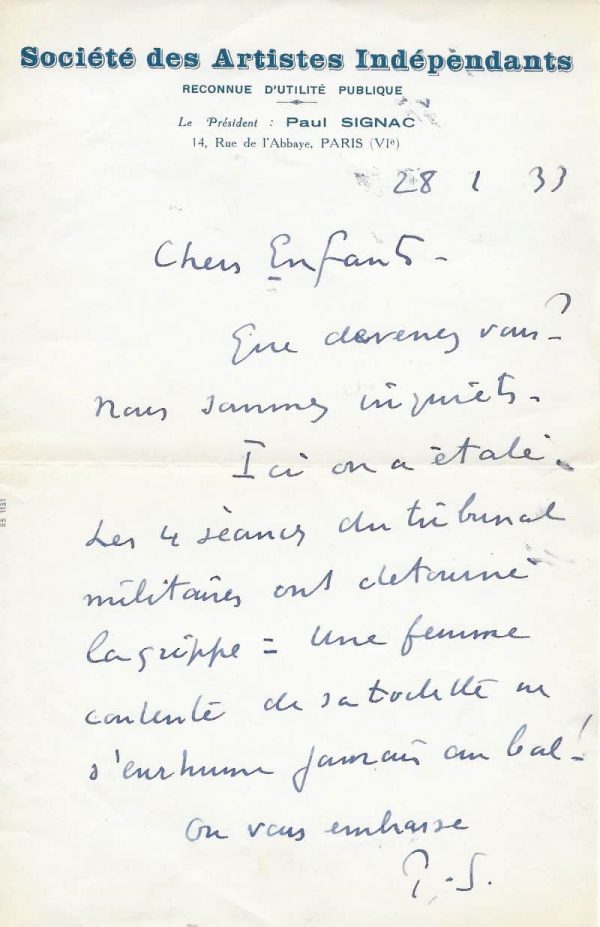 Société des Artistes Indépendants
RECONNUE D'UTILITÉ PUBLIQUE
Le Président : Paul SIGNAC
14, Rue de l'Abbaye, PARIS (VIe)
28 1 33
Chers Enfants -
Que devenez vous ?
Nous sommes inquiets -
Ici on a étalé.
Les 4 séances du tribunal
militaires ont détourné
la grippe = Une femme
contente de sa toilette ne
s'enrhume jamais au bal !
On vous embrasse
P.-S.